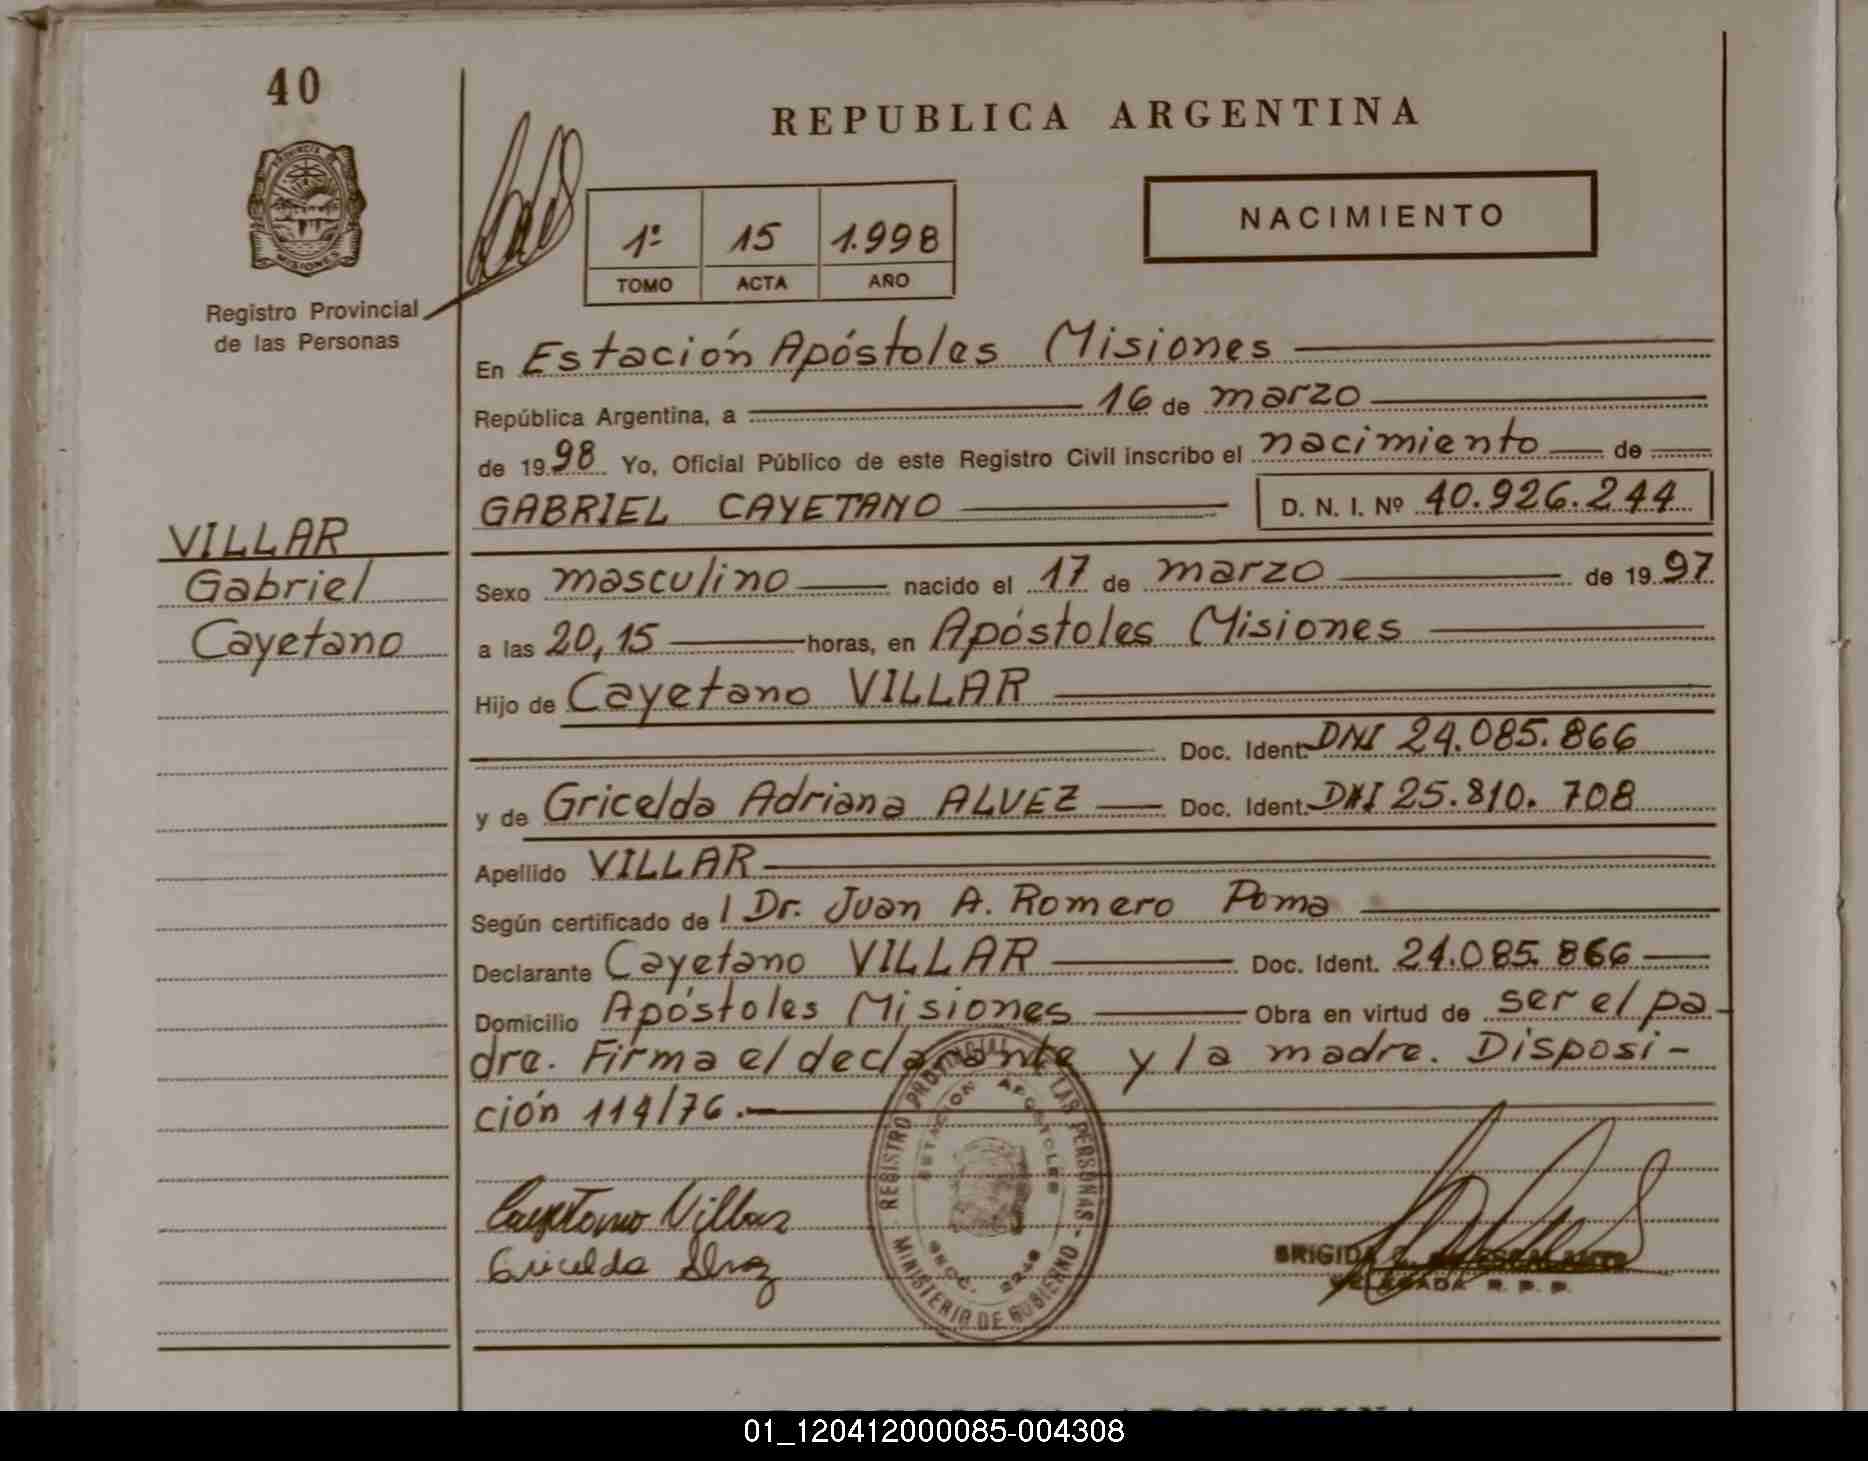 40
REPUBLICA ARGENTINA
PROVINCIA DE
MISIONES
Registro Provincial
de las Personas
1º 15 1.998
TOMO ACTA AÑO
NACIMIENTO
En Estación Apóstoles Misiones
República Argentina, a 16 de marzo
de 1998 Yo, Oficial Público de este Registro Civil inscribo el nacimiento de
GABRIEL CAYETANO D. N. I. Nº 40.926.244
VILLAR
Gabriel
Cayetano
Sexo masculino nacido el 17 de marzo de 1997
a las 20,15 horas, en Apóstoles Misiones
Hijo de Cayetano VILLAR
Doc. Ident. DNI 24.085.866
y de Gricelda Adriana ALVEZ Doc. Ident. DNI 25.810.708
Apellido VILLAR
Según certificado de l Dr. Juan A. Romero Poma
Declarante Cayetano VILLAR Doc. Ident. 24.085.866
Domicilio Apóstoles Misiones Obra en virtud de ser el pa-
dre. Firma el declarante y la madre. Disposi-
ción 114/76.-
Cayetano Villar
Gricelda Alvez
REGISTRO PROVINCIAL DE LAS PERSONAS - MINISTERIO DE GOBIERNO -
ESTACION APOSTOLES
SECC.
BRIGIDA de ESCALANTE
DELEGADA R. P. P.
REPUBLICA ARGENTINA
01_120412000085-004308